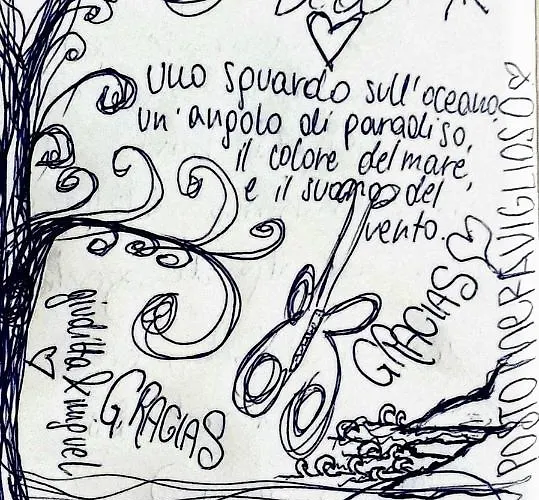 Uno sguardo sull'oceano,
un'angolo di paradiso,
il colore del mare,
e il suono del
vento.
GRACIAS
GRACIAS
giuditta & miguel
POSTO MERAVIGLIOSO